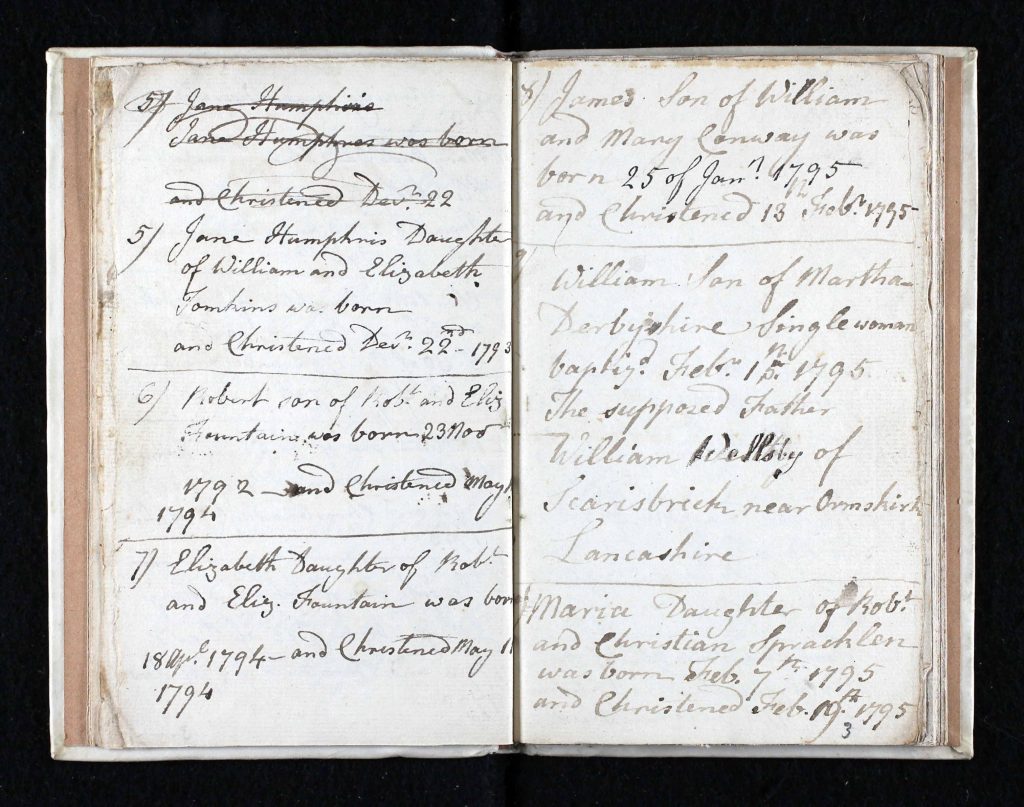 5) Jane Humphris
Jane Humphres was born
and Christened Decr. 22
5) Jane Humphris Daughter
of William and Elizabeth
Tomkins was born
and Christened Decr. 22nd - 1793
6) Robert son of Robt. and Eliz
Fountain was born 23 Nov
1792 - and Christened May
1794
7) Elizabeth Daughter of Robt.
and Eliz. Fountain was born
18 Apl. 1794 - and Christened May 11
1794
8) James Son of William
and Mary Conway was
born 25 of Janr. 1795
and Christened 13th Febr. 1795
9) William Son of Martha
Derbyshire Singlewoman
baptizd. Febr. 15. 1795
The supposed Father
William Wellsby of
Scarisbrick near Ormskirk
Lancashire
Maria Daughter of Robt.
and Christian Spracklen
was born Feb. 7th 1795
and Christened Feb. 19th 1795
3